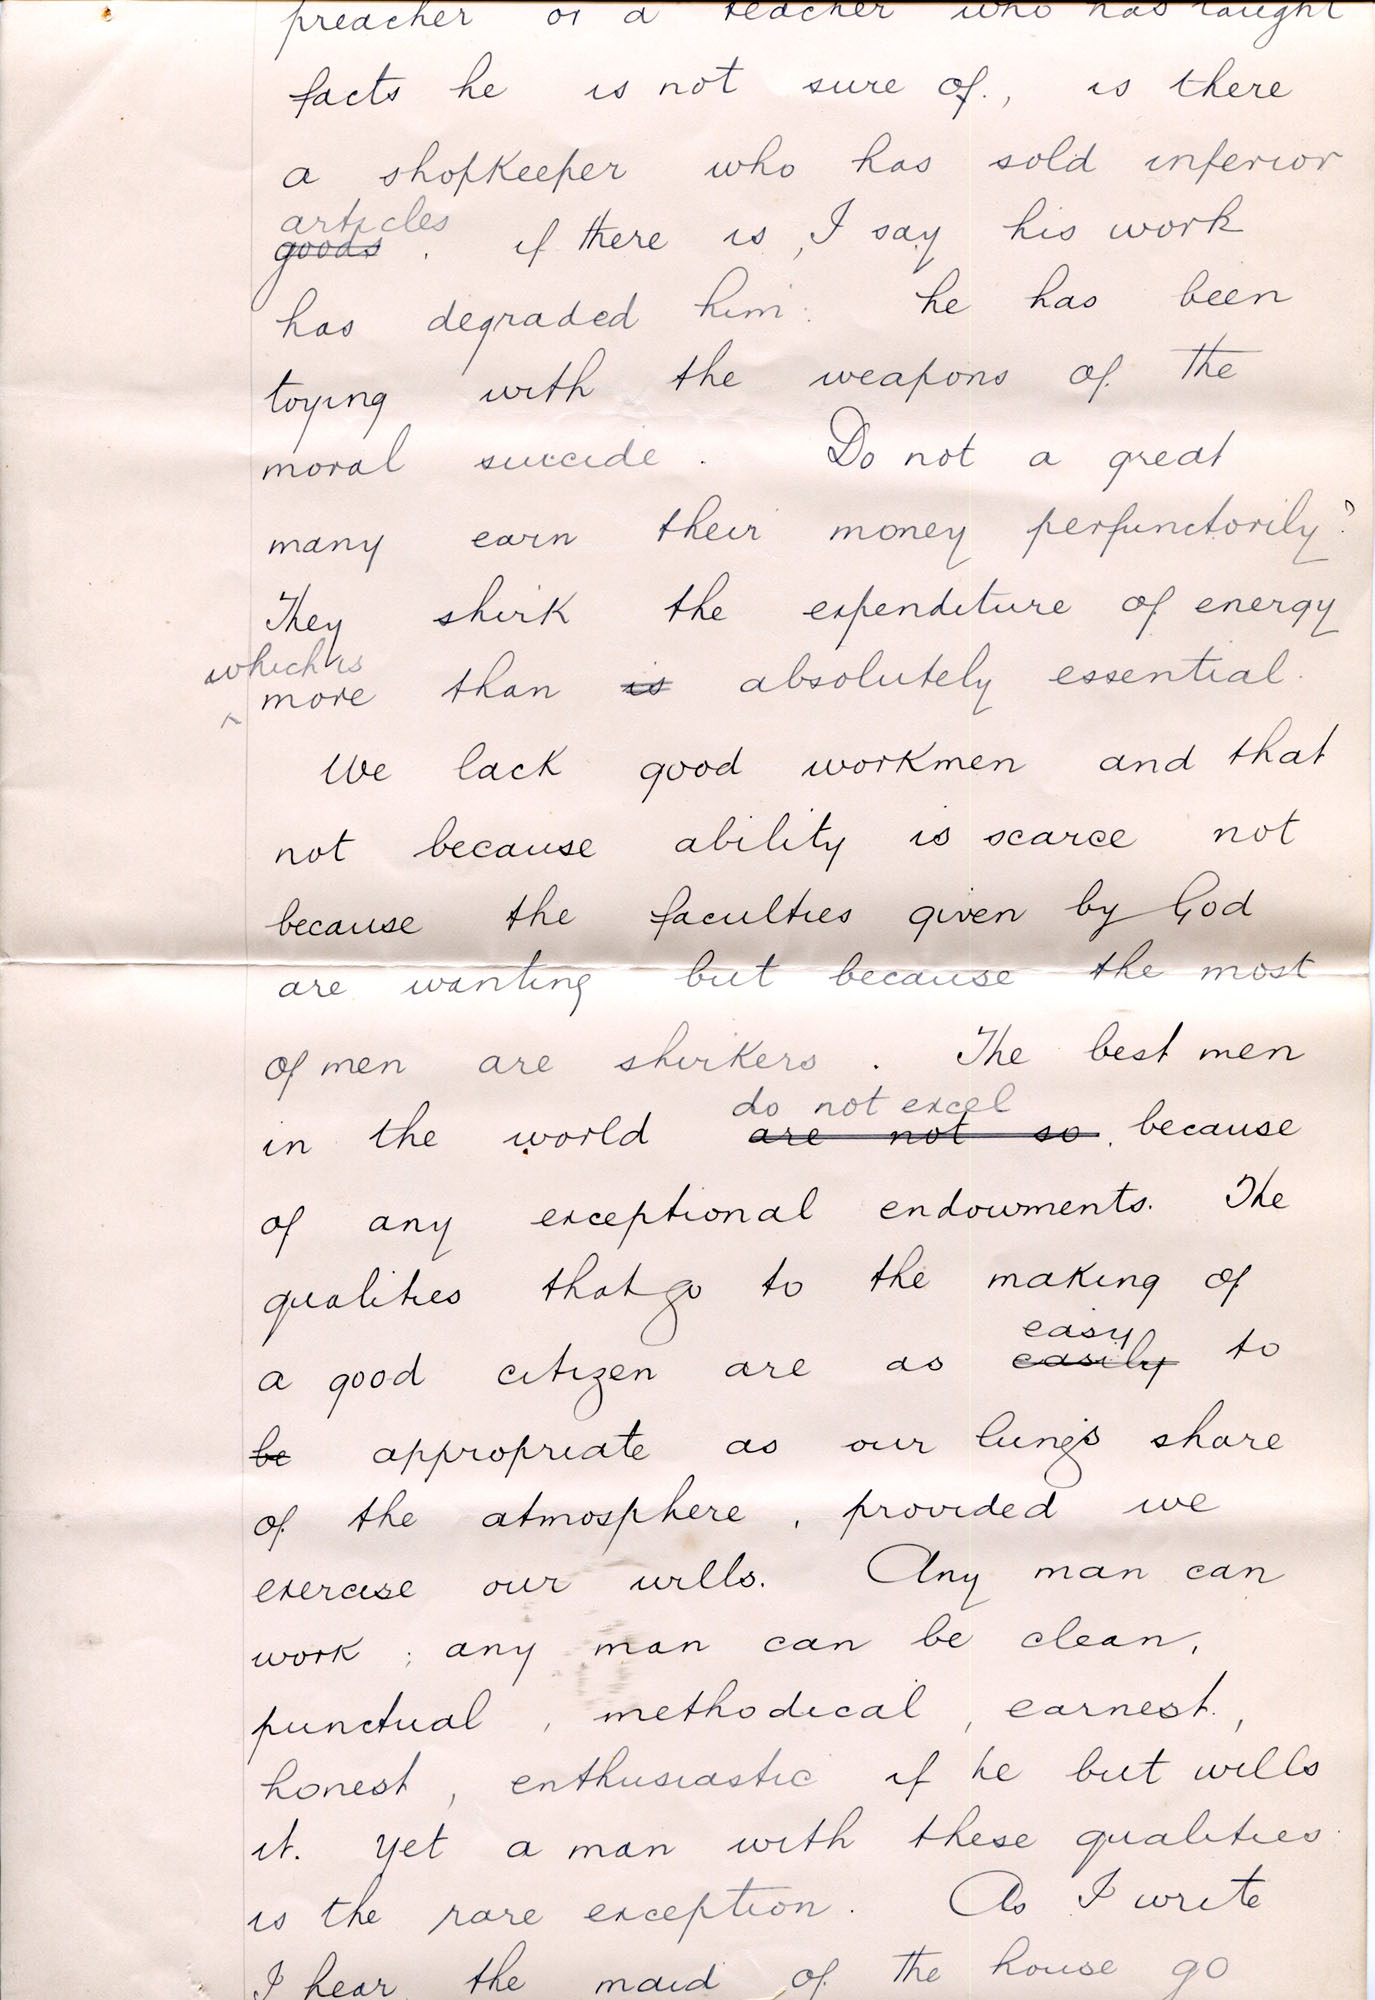 preacher or a teacher who has taught
facts he is not sure of., is there
a shopkeeper who has sold inferior
articles
goods . if there is, I say his work
has degraded him. he has been
toying with the weapons of the
moral suicide . Do not a great
many earn their money perfunctorily?
They shirk the expenditure of energy
which is
more than is absolutely essential.
We lack good workmen and that
not because ability is scarce not
because the faculties given by God
are wanting but because the most
of men are shirkers . The best men
do not excel
in the world are not so, because
of any exceptional endowments. The
qualities that go to the making of
easy
a good citizen are as easily to
be appropriate as our lungs share
of the atmosphere, provided we
exercise our wills. Any man can
work ; any man can be clean,
punctual, methodical, earnest,
honest, enthusiastic if he but wills
it. yet a man with these qualities
is the rare exception. As I write
I hear the maid of the house go